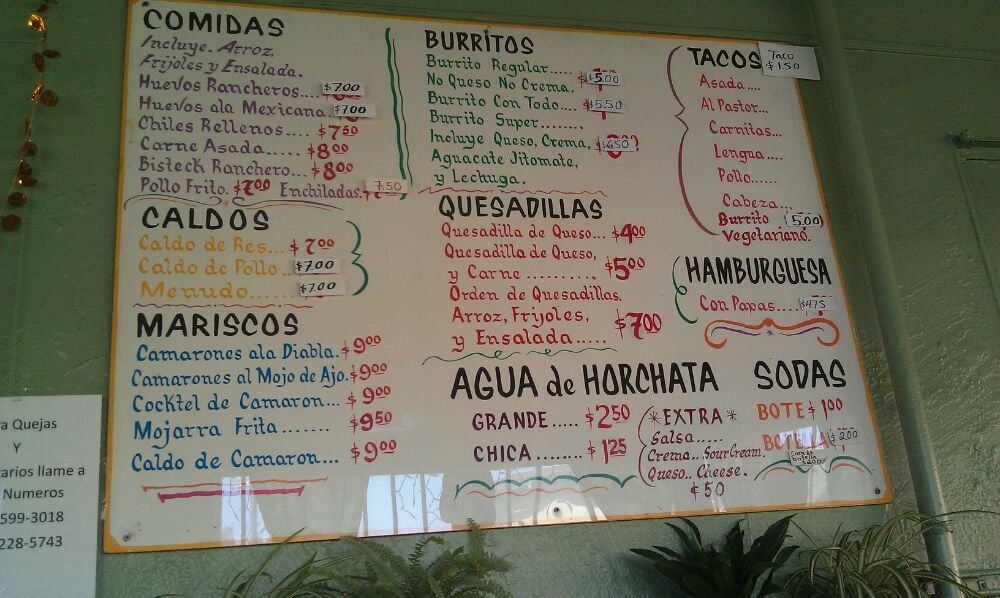 COMIDAS
Incluye. Arroz,
Frijoles y Ensalada.
Huevos Rancheros... $7.00
Huevos ala Mexicana. $7.00
Chiles Rellenos.... $7.50
Carne Asada..... $8.00
Bisteck Ranchero... $8.00
Pollo Frito. $7.00 Enchiladas. 7.50
CALDOS
Caldo de Res... $7.00
Caldo de Pollo.. $7.00
Menudo........ $7.00
MARISCOS
Camarones ala Diabla. $9.00
Camarones al Mojo de Ajo. $9.00
Cocktel de Camaron... $9.00
Mojarra Frita ....... $9.50
Caldo de Camaron... $9.00
BURRITOS
Burrito Regular.....
No Queso No Crema. $5.00
Burrito Con Todo.... $5.50
Burrito Super........
Incluye Queso, Crema, $6.50
Aguacate Jitomate,
y Lechuga.
QUESADILLAS
Quesadilla de Queso... $4.00
Quesadilla de Queso,
y Carne .......... $5.00
Orden de Quesadillas.
Arroz, Frijoles,
y Ensalada..... $7.00
TACOS Taco $1.50
Asada....
Al Pastor...
Carnitas...
Lengua....
Pollo......
Cabeza...
Burrito 5.00
Vegetariano.
HAMBURGUESA
Con Papas.... $4.75
AGUA de HORCHATA
GRANDE..... $2.50
CHICA........ $1.25
*EXTRA*
Salsa.....
Crema.. Sour Cream.
Queso.. Cheese.
¢50
SODAS
BOTE $1.00
BOTELLA $2.00
Quejas
Y
arios llame a
Numeros
599-3018
228-5743